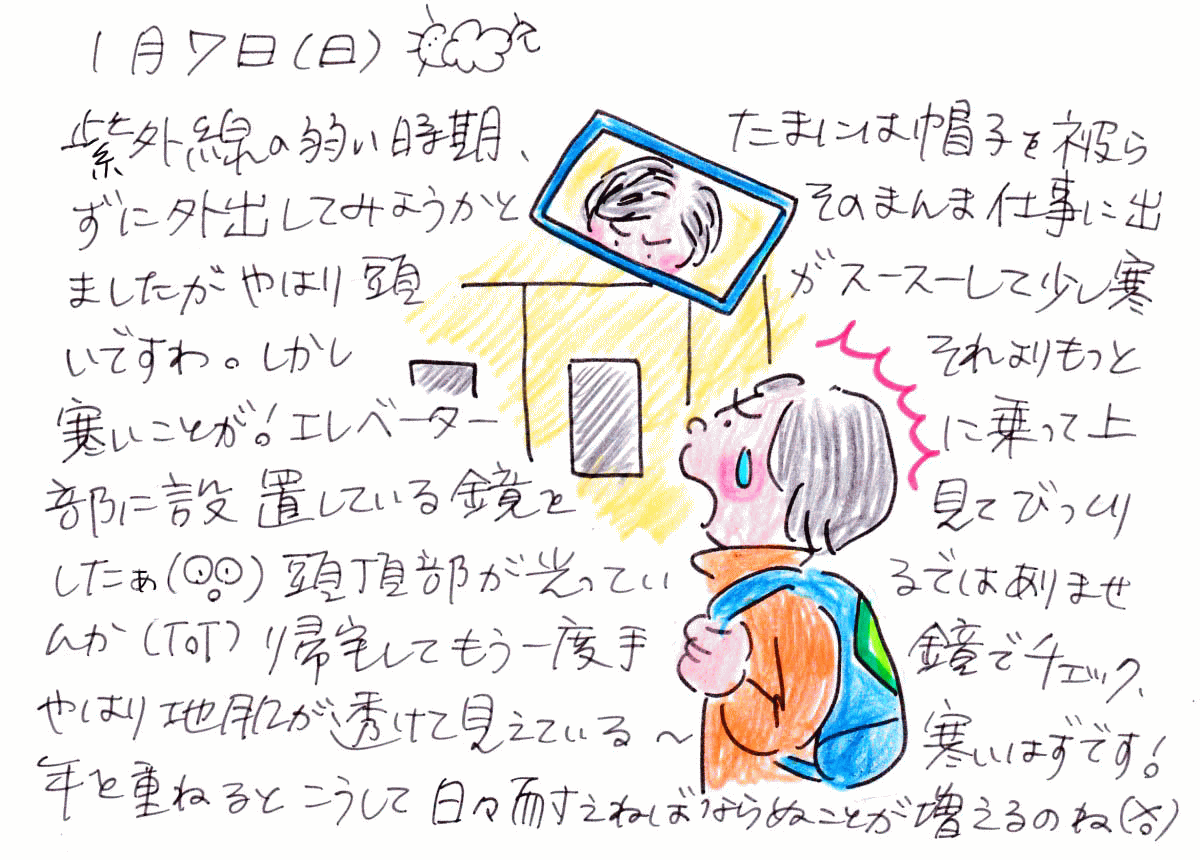 1月7日(日)
紫外線の弱い時期、たまには帽子を被ら
ずに外出してみようかとそのまんま仕事に出
ましたがやはり頭がスースーして少し寒
いですわ。しかしそれよりもっと
寒いことが!エレベーターに乗って上
部に設置している鏡を見てびっくり
したぁ(◎◎)頭頂部が光っているではありませ
んか(ToT)り帰宅してもう一度手鏡でチェック、
やはり地肌が透けて見えている〜寒いはずです!
年を重ねるとこうして日々耐えねばならぬことが増えるのね